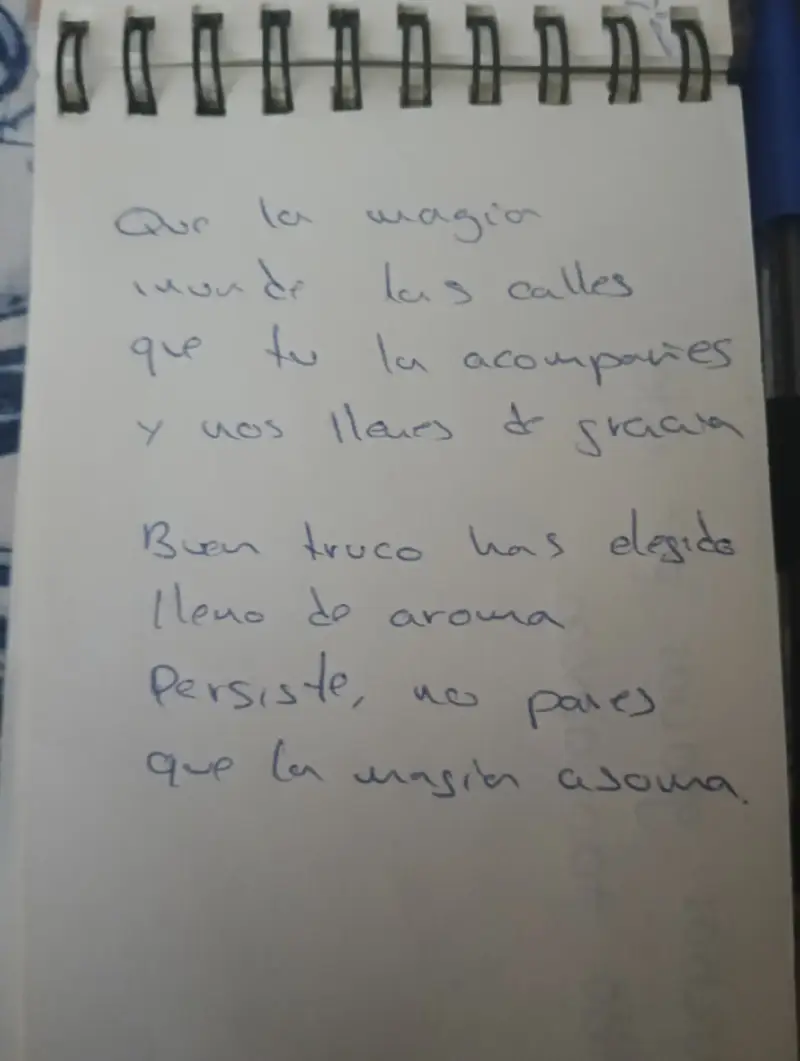 Que la magia
inunde las calles
que tu la acompañes
y nos llenes de gracia
Buen truco has elegido
lleno de aroma
Persiste, no pares
que la magia asoma.